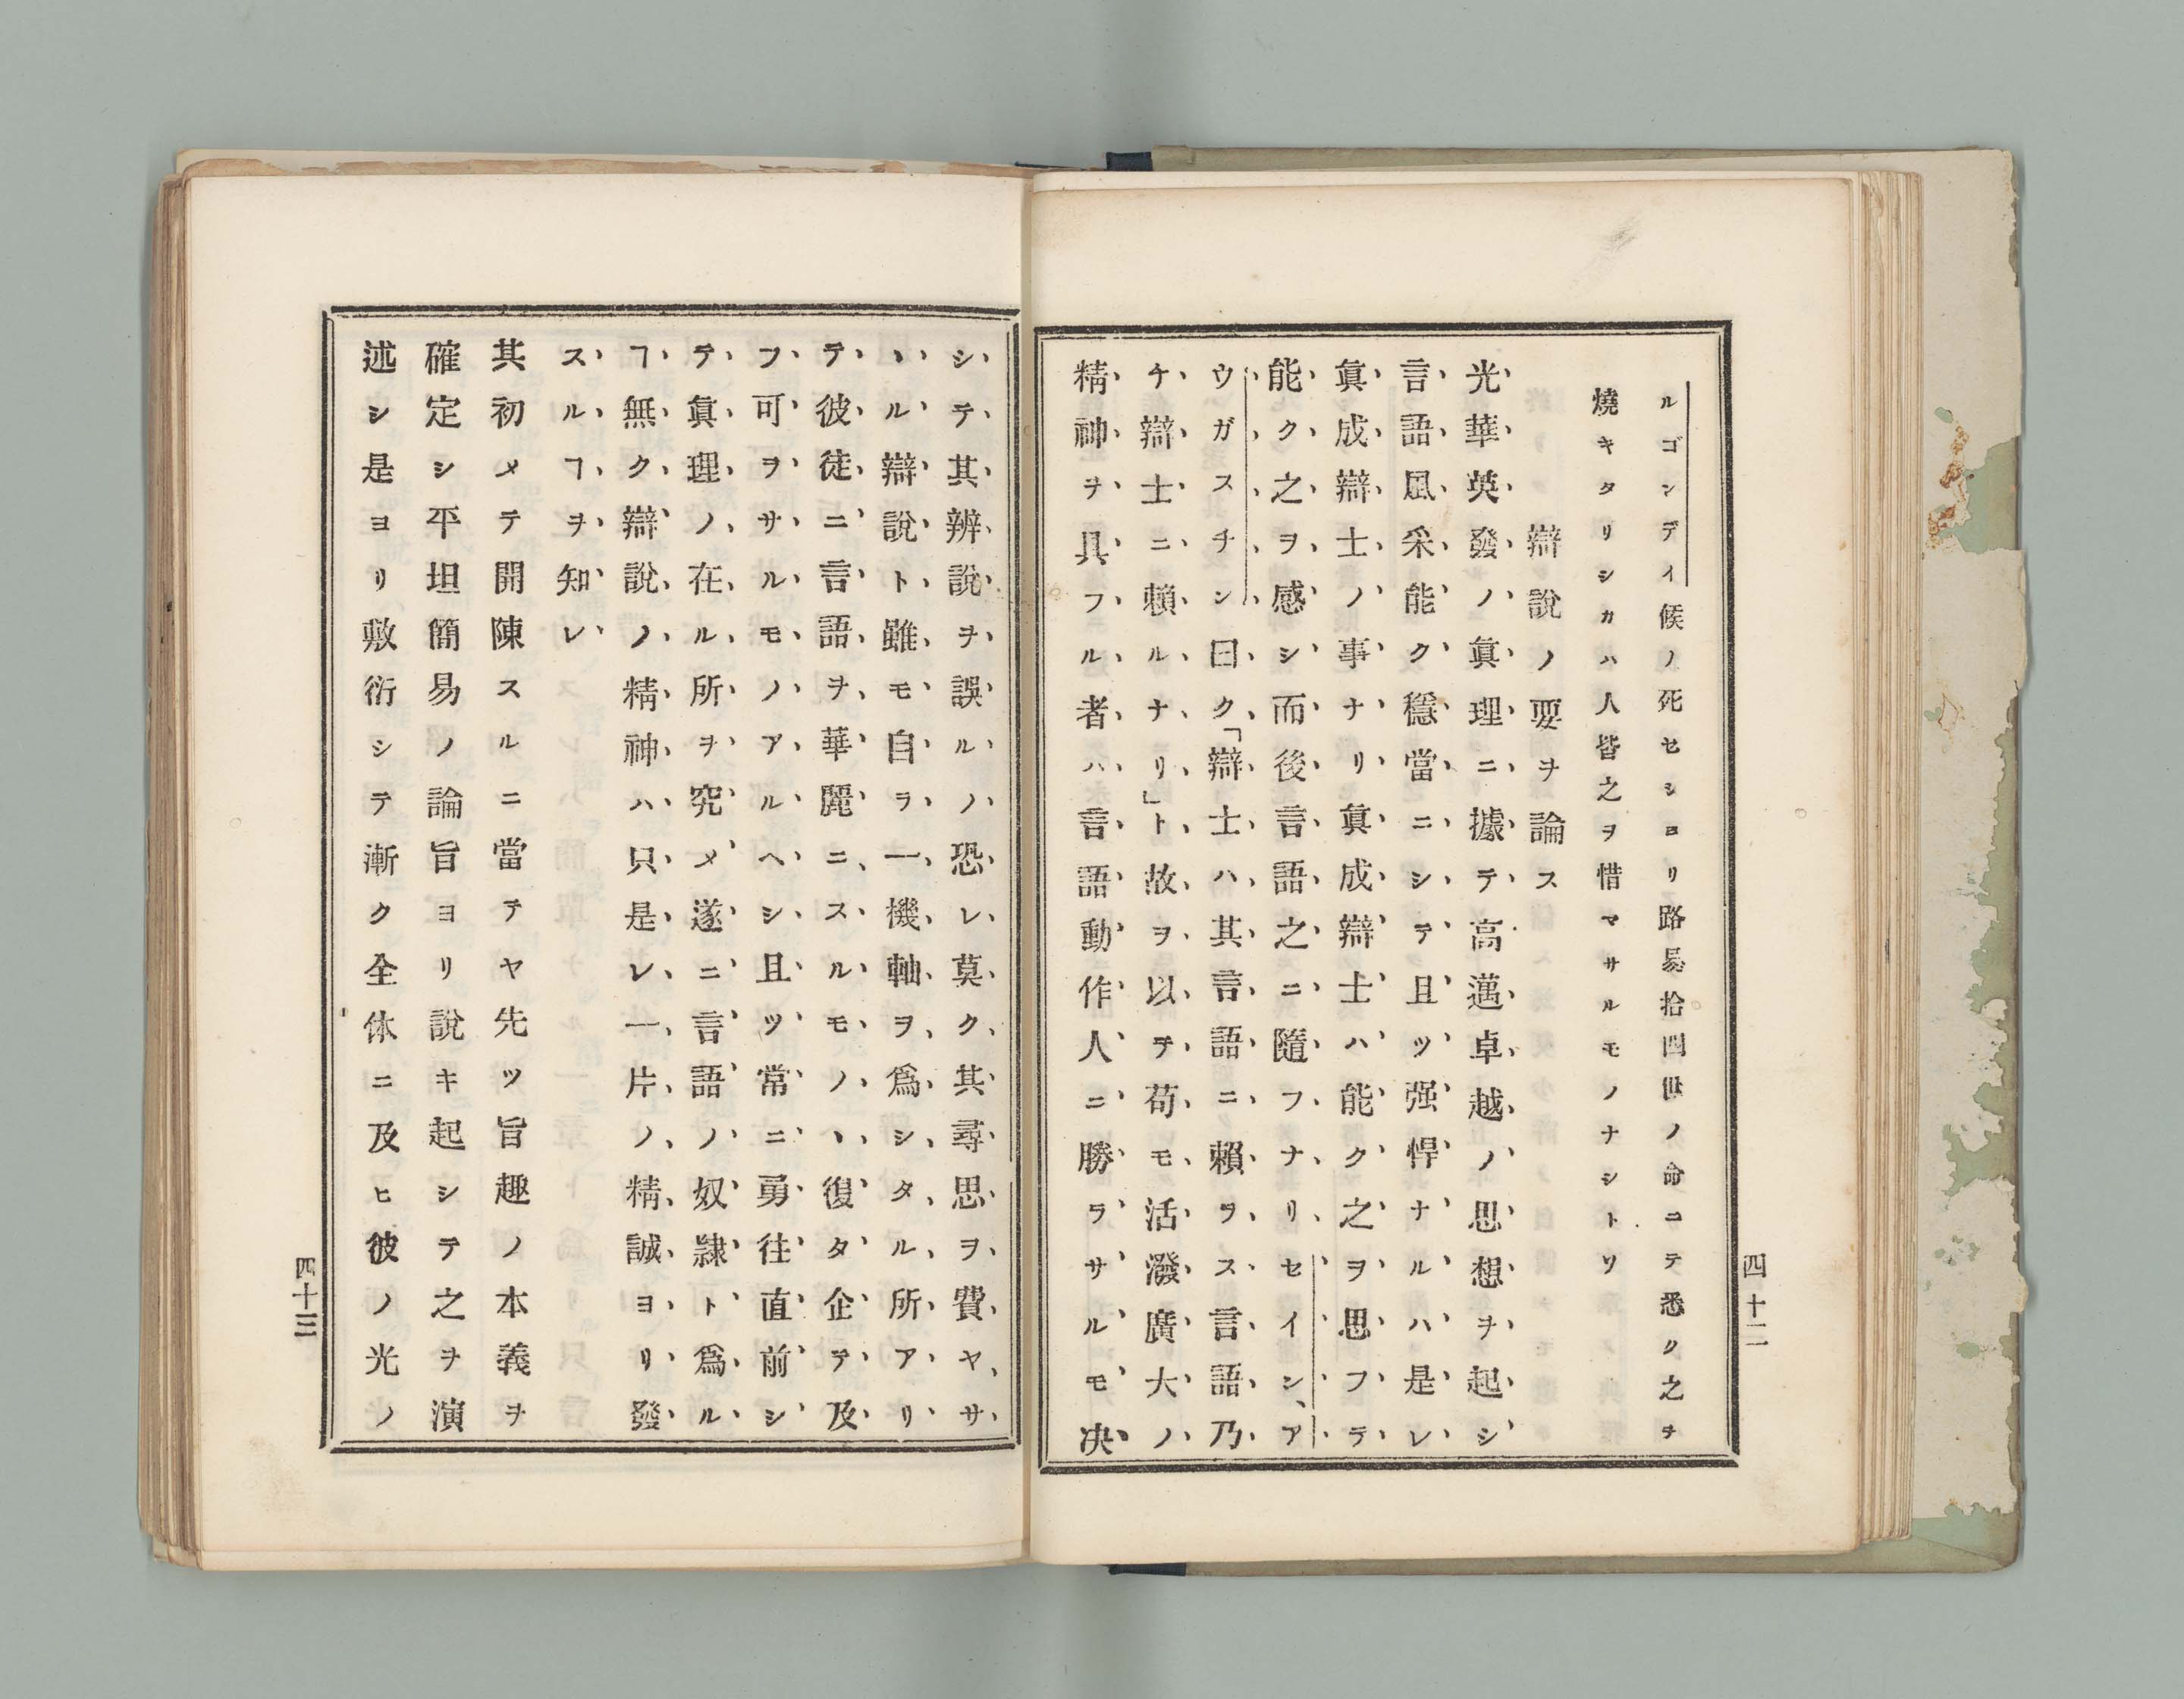 ルゴンデイ候ノ死セシヨリ路易拾四世ノ命ニテ悉ク之ヲ
燒キタリシカハ人皆之ヲ惜マサルモノナシトソ
辯說ノ要ヲ論ス
光華英發ノ眞理ニ據テ高邁卓越ノ思想ヲ起シ
言語風采能ク穩當ニシテ且ツ强悍ナルハ是レ
眞成辯士ノ事ナリ眞成辯士ハ能ク之ヲ思フラ
能ク之ヲ感シ而後言語之ニ隨フナリセイン、ア
ウガスチン曰ク「辯士ハ其言語ニ賴ヲス言語乃
チ辯士ニ賴ルナリ」ト故ヲ以テ苟モ活潑廣大ノ
精神ヲ具フル者ハ言語動作人ニ勝ラサルモ决
四十二
シテ其辨說ヲ誤ルノ恐レ莫ク其尋思ヲ費ヤサ
ヽル辯說ト雖モ自ラ一機軸ヲ爲シタル所アリ
テ彼徒ニ言語ヲ華麗ニスルモノヽ復タ企テ及
フ可ヲサルモノアルヘシ且ツ常ニ勇往直前シ
テ眞理ノ在ル所ヲ究メ遂ニ言語ノ奴隷ト爲ル
ヿ無ク辯說ノ精神ハ只是レ一片ノ精誠ヨリ發
スルヿヲ知レ
其初メテ開陳スルニ當テヤ先ツ旨趣ノ本義ヲ
確定シ平坦簡易ノ論旨ヨリ說キ起シテ之ヲ演
述シ是ヨリ敷衍シテ漸ク全体ニ及ヒ彼ノ光ノ
四十三